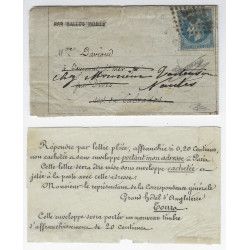 PAR BALLON MONTÉ
Mme Daviaud
chez Monsieur
Nantes
Répondre par lettre pliée, affranchie à 0,20 centimes,
non cachetée & sous enveloppe portant mon adresse à Paris.
Cette lettre devra être mise sous enveloppe cachetée &
jetée à la poste avec cette adresse:
Monsieur le représentant de la Correspondance générale
Grand hôtel d'Angleterre
Tours
Cette enveloppe devra porter un nouveau timbre
d'affranchissement de 20 centimes.